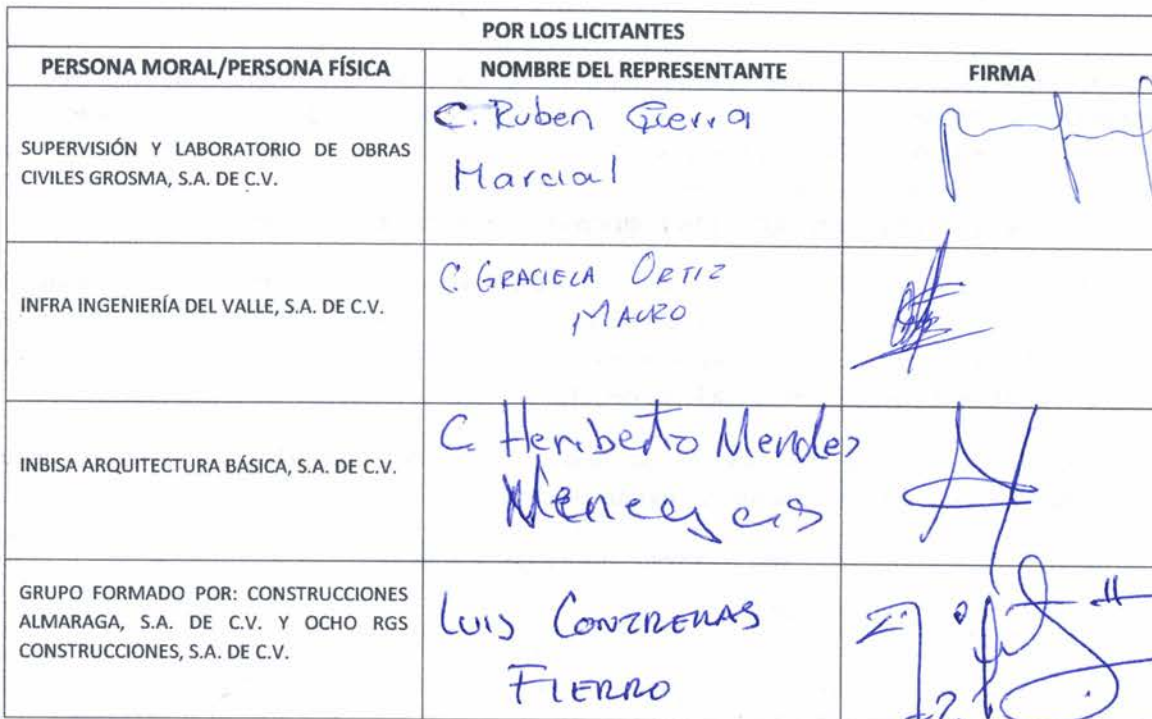 POR LOS LICITANTES
PERSONA MORAL/PERSONA FÍSICA NOMBRE DEL REPRESENTANTE FIRMA
SUPERVISIÓN Y LABORATORIO DE OBRAS
CIVILES GROSMA, S.A. DE C.V.
C. Ruben
Marcial
INFRA INGENIERÍA DEL VALLE, S.A. DE C.V.
C. GRACIELA ORTIZ
MAURO
INBISA ARQUITECTURA BÁSICA, S.A. DE C.V.
C. Heriberto Mendez
GRUPO FORMADO POR: CONSTRUCCIONES
ALMARAGA, S.A. DE C.V. Y OCHO RGS
CONSTRUCCIONES, S.A. DE C.V.
LUIS CONTRERAS
FIERRO